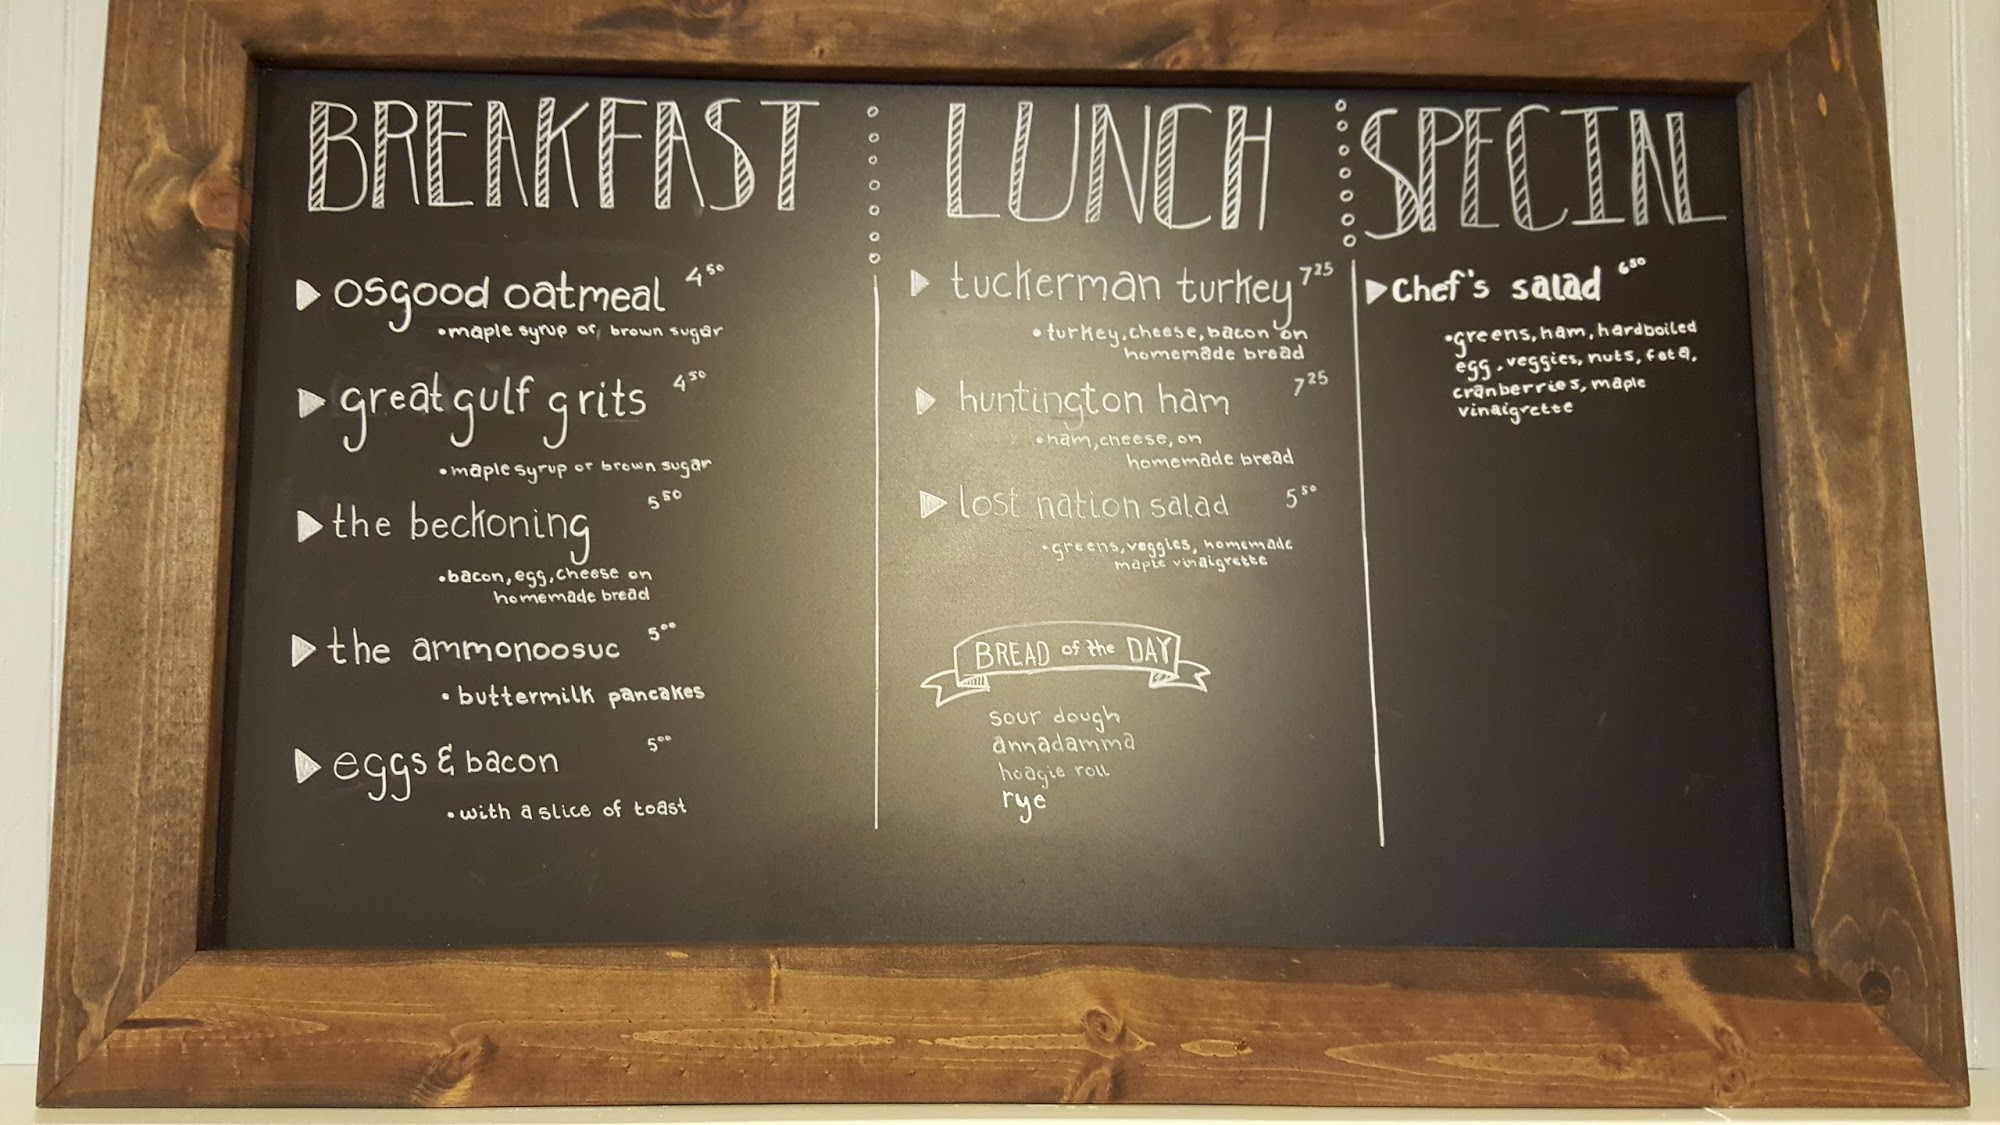 BREAKFAST
osgood oatmeal 4 50
•maple syrup or brown sugar
great gulf grits 4 50
•maple syrup or brown sugar
the beckoning 5 50
•bacon, egg, cheese on
homemade bread
the ammonoosuc 5 00
•buttermilk pancakes
eggs & bacon 5 00
•with a slice of toast
LUNCH
tuckerman turkey 7 25
•turkey, cheese, bacon on
homemade bread
huntington ham 7 25
•ham, cheese, on
homemade bread
lost nation salad 5 50
•greens, veggies, homemade
maple vinaigrette
BREAD of the DAY
sour dough
annadamma
hoagie roll
rye
SPECIAL
chef's salad 6 50
•greens, ham, hardboiled
egg, veggies, nuts, feta,
cranberries, maple
vinaigrette